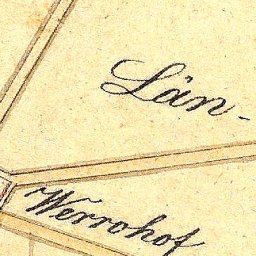 Län-
Werrohof